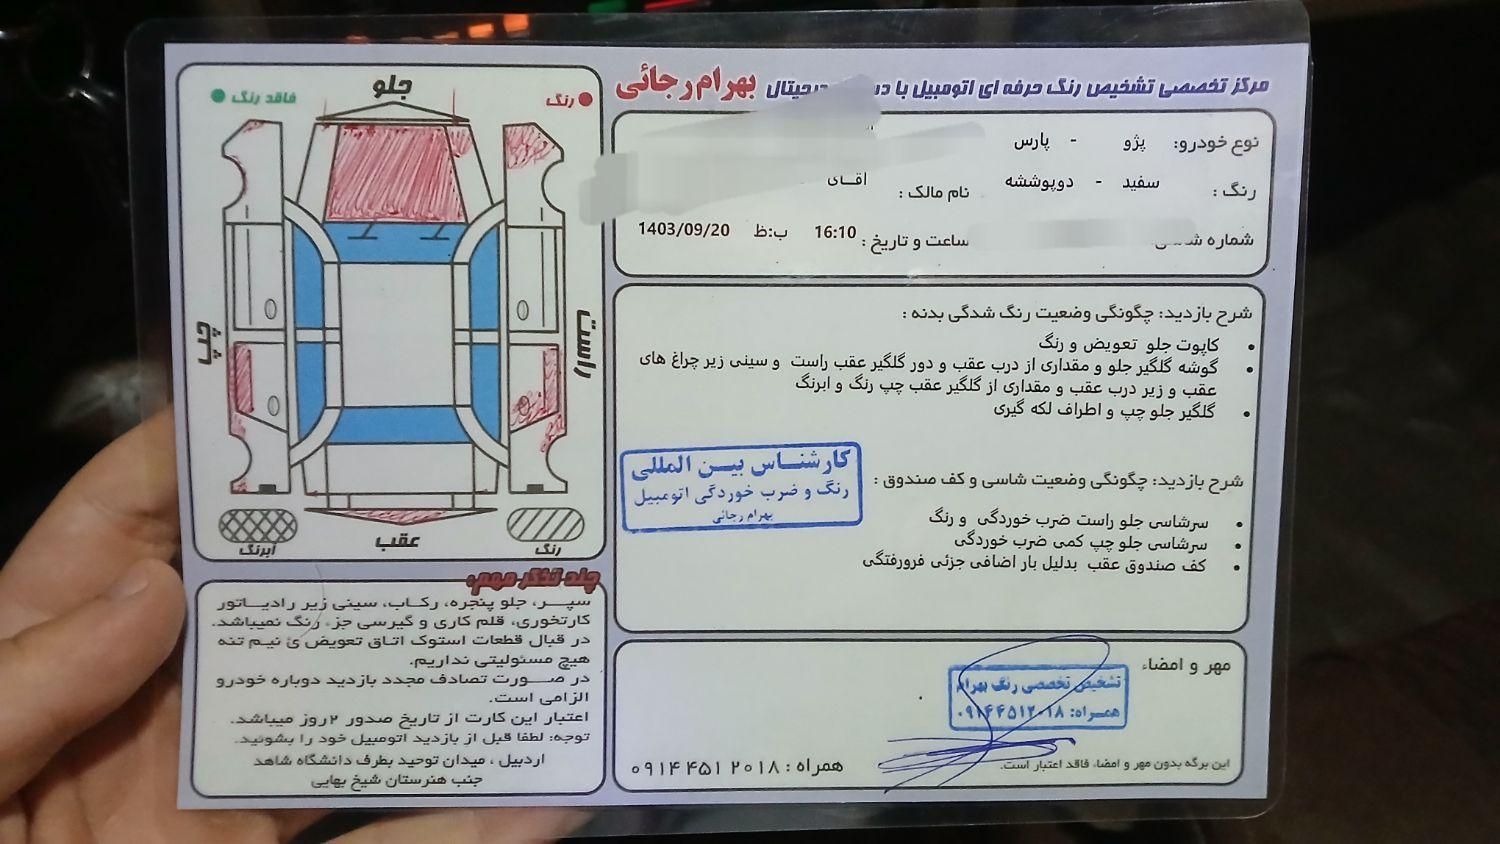 مرکز تخصصی تشخیص رنگ حرفه ای اتومبیل با دیجیتال بهرام رجائی
نوع خودرو: پژو - پارس
رنگ : سفید - دوپوششه
نام مالک : اقـای
شماره
ساعت و تاریخ : 16:10 ب:ظ 1403/09/20
شرح بازدید: چگونگی وضعیت رنگ شدگی بدنه :
• کاپوت جلو تعویض و رنگ
• گوشه گلگیر جلو و مقداری از درب عقب و دور گلگیر عقب راست و سینی زیر چراغ های
عقب و زیر درب عقب و مقداری از گلگیر عقب چپ رنگ و ابرنگ
• گلگیر جلو چپ و اطراف لکه گیری
شرح بازدید: چگونگی وضعیت شاسی و کف صندوق :
• سرشاسی جلو راست ضرب خوردگی و رنگ
• سرشاسی جلو چپ کمی ضرب خوردگی
• کف صندوق عقب بدلیل بار اضافی جزئی فرورفتگی
کارشنـاس بیـن المللی
رنگ و ضرب خوردگی اتومبیل
بهرام رجائی
مهر و امضاء
تشخیص تخصصی رنگ بهرام
همـراه: ۰۹۱۴۴۵۱۲۰۱۸
این برگه بدون مهر و امضاء، فاقد اعتبار است.
همراه : ۰۹۱۴ ۴۵۱ ۲۰۱۸
رنگ
فاقد رنگ
جلو
چپ
راست
عقب
رنگ
آبرنگ
چند تذکر مهم:
سپـر، جلو پنجره، رکـاب، سینی زیر رادیـاتور
کارتخوری، قلم کاری و گیرسی جزء رنگ نمیباشد.
در قبال قطعات استوک اتاق تعویض ئ نیـم تنه
هیچ مسئولیتی نداریم.
در صـورت تصادف مجدد بازدید دوباره خودرو
الزامی است.
اعتبار این کارت از تاریخ صدور ۲ روز میباشد.
توجه: لطفا قبل از بازدید اتومبیل خود را بشوئید.
اردبیل ، میدان توحید بطرف دانشگاه شاهد
جنب هنرستان شیخ بهایی